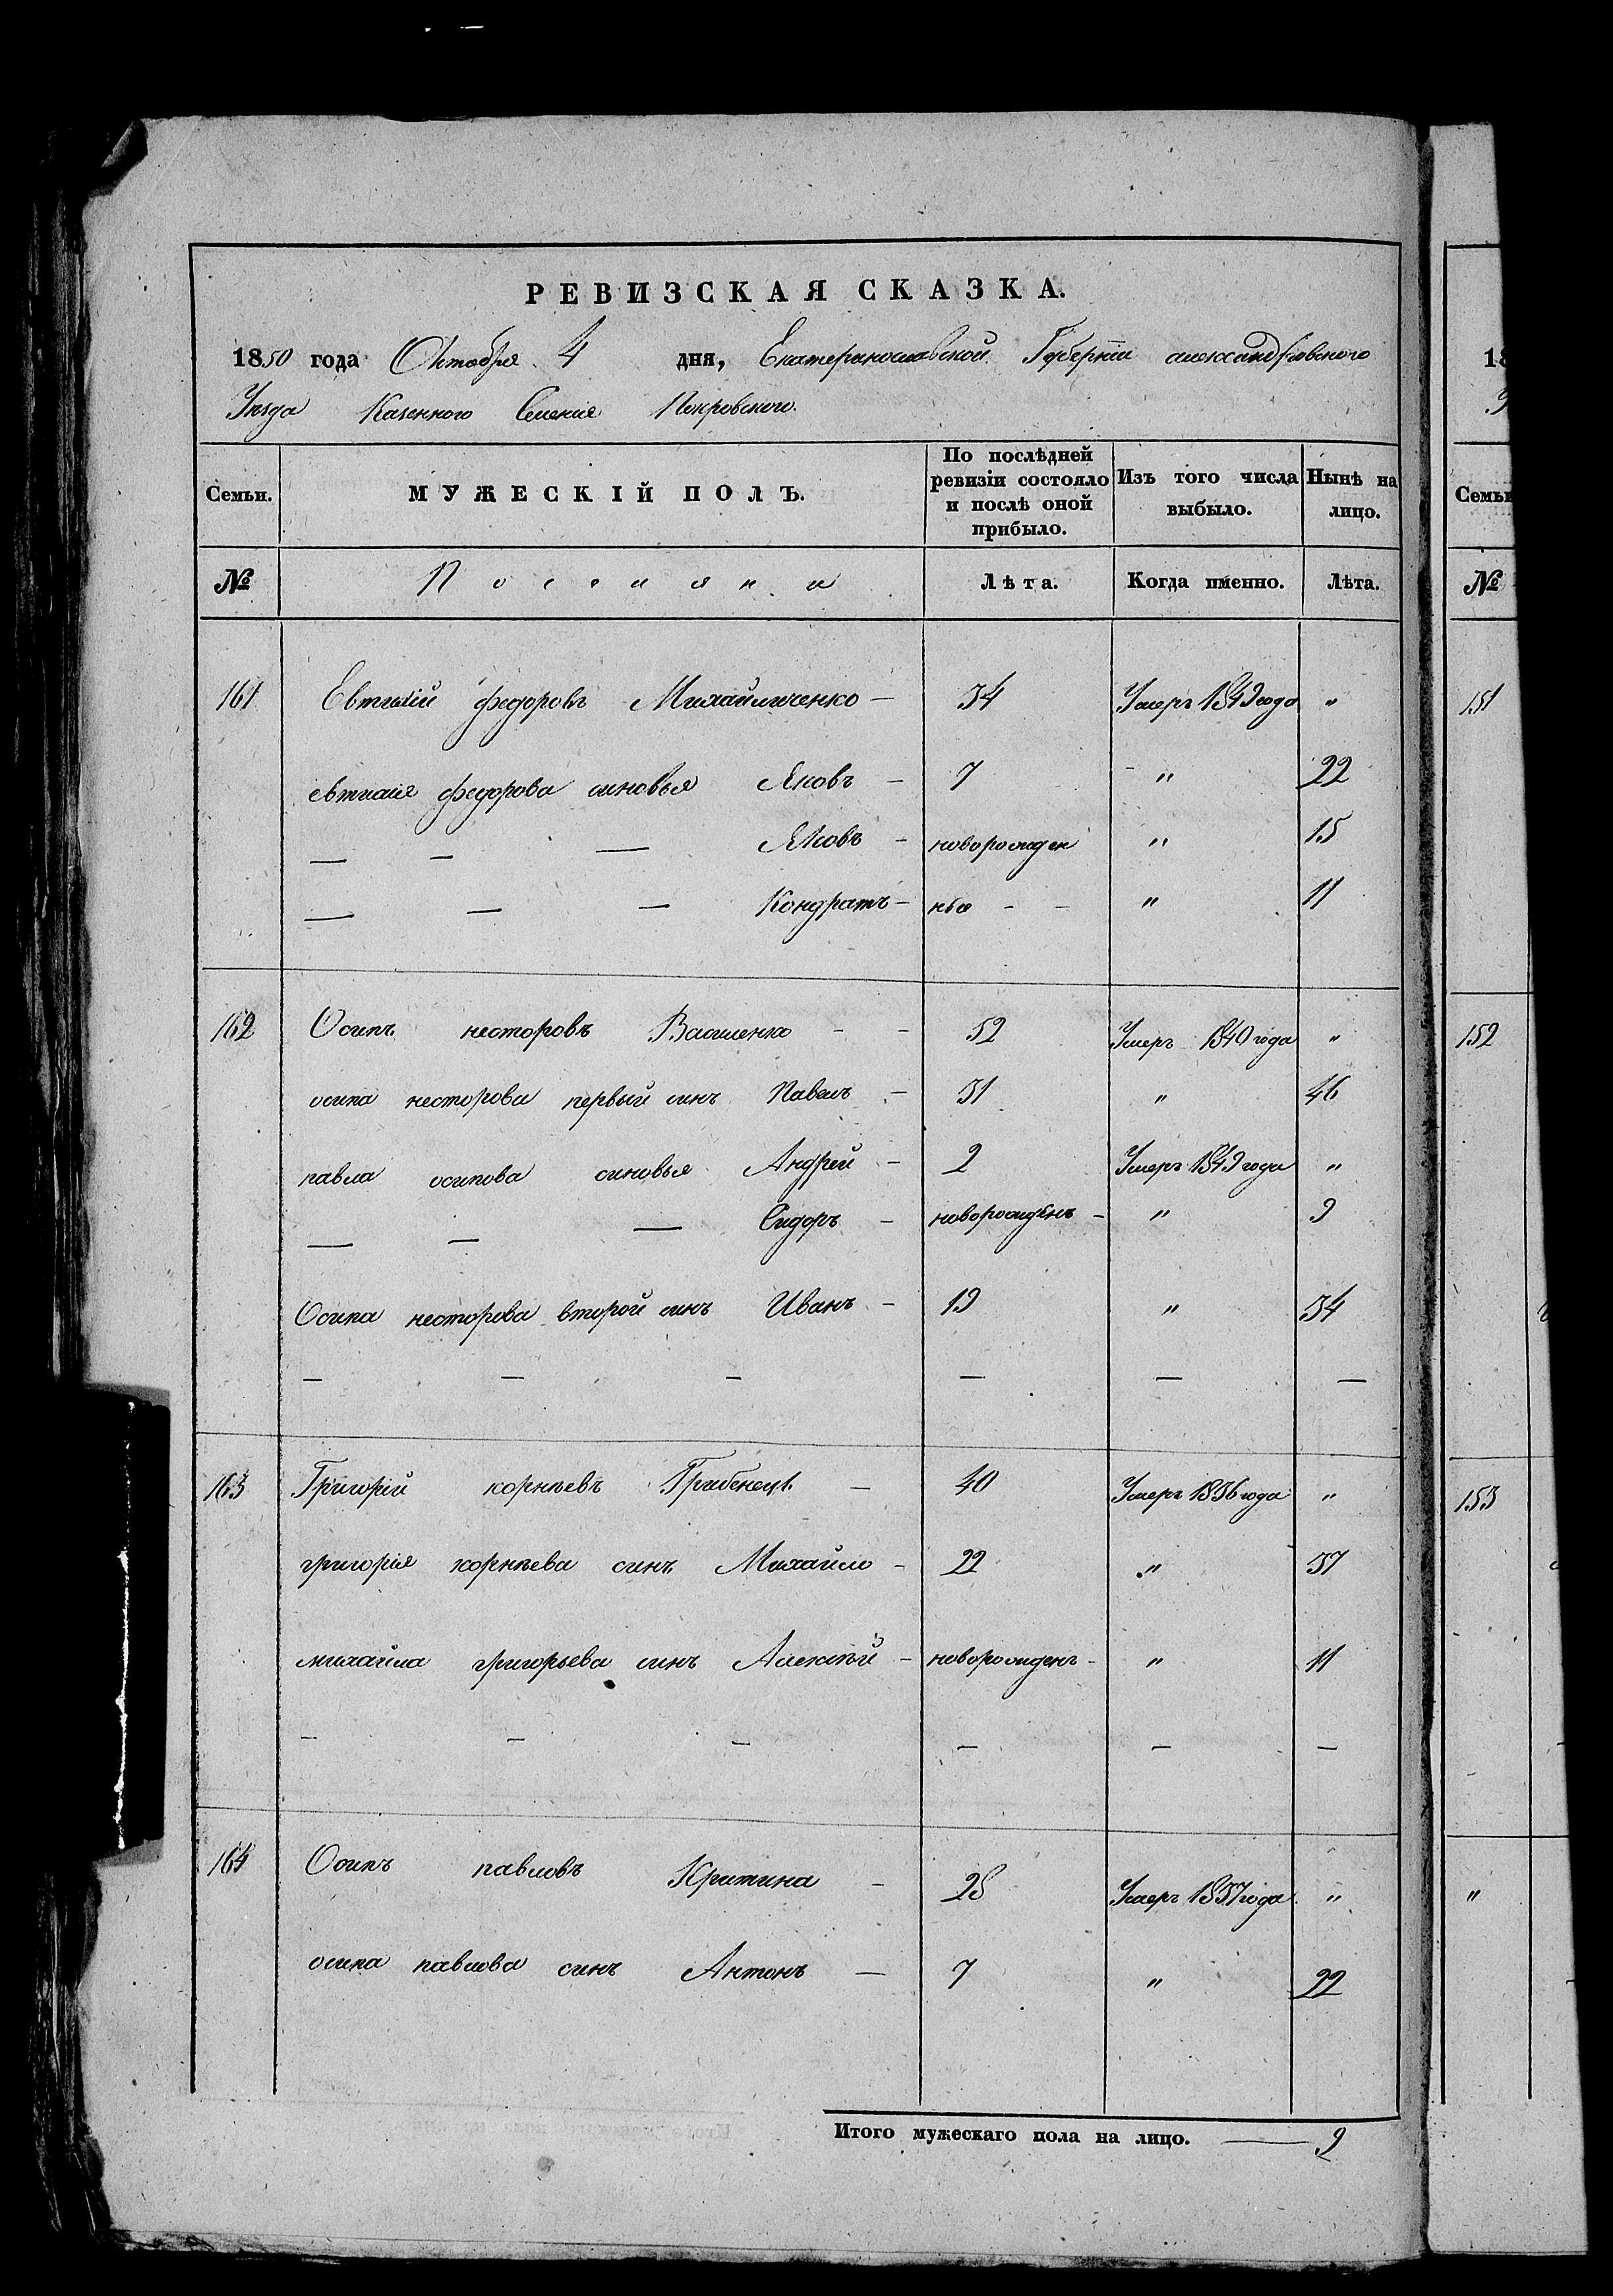 РЕВИЗСКАЯ СКАЗКА.
1850 года Октября 4 дня, Екатеринославской Губерніи александровского
Уѣзда Казенного Селенія Покровского.
Семьи. МУЖЕСКІЙ ПОЛЪ. По послѣдней ревизіи состояло и послѣ оной прибыло. Изъ того числа выбыло. Нынѣ на лицо.
№ Поселяни Лѣта. Когда именно. Лѣта.
161 Евтихій федоровъ Михайличенко — 34 Умеръ 1849 года "
евтихія федорова синовья Яковъ — 7 " 22
— — — Яковъ — новорожден " 15
— — — Кондратъ — ныя - - " 11
162 Осипъ несторовъ Василенко - - 52 Умеръ 1840 года "
осипа несторова первый синъ Павелъ — 31 " 46
павла осипова синовья Андрей — 2 Умеръ 1849 года "
— — — Сидоръ — новорожденъ — " 9
Осипа несторова второй синъ Иванъ — 19 " 34
— — — — — —
163 Григорій корнѣевъ Грибенецъ — 40 Умеръ 1836 года "
григорія корнѣева синъ Михайло — 22 " 37
михайла григорьева синъ Алексѣй — новорожденъ — " 11
— — — — — —
164 Осипъ павловъ Критина — 28 Умеръ 1837 года "
осипа павлова синъ Антонъ — 7 " 22
Итого мужескаго пола на лицо. — 9
18
У
Семьи
№
151
152
153
"